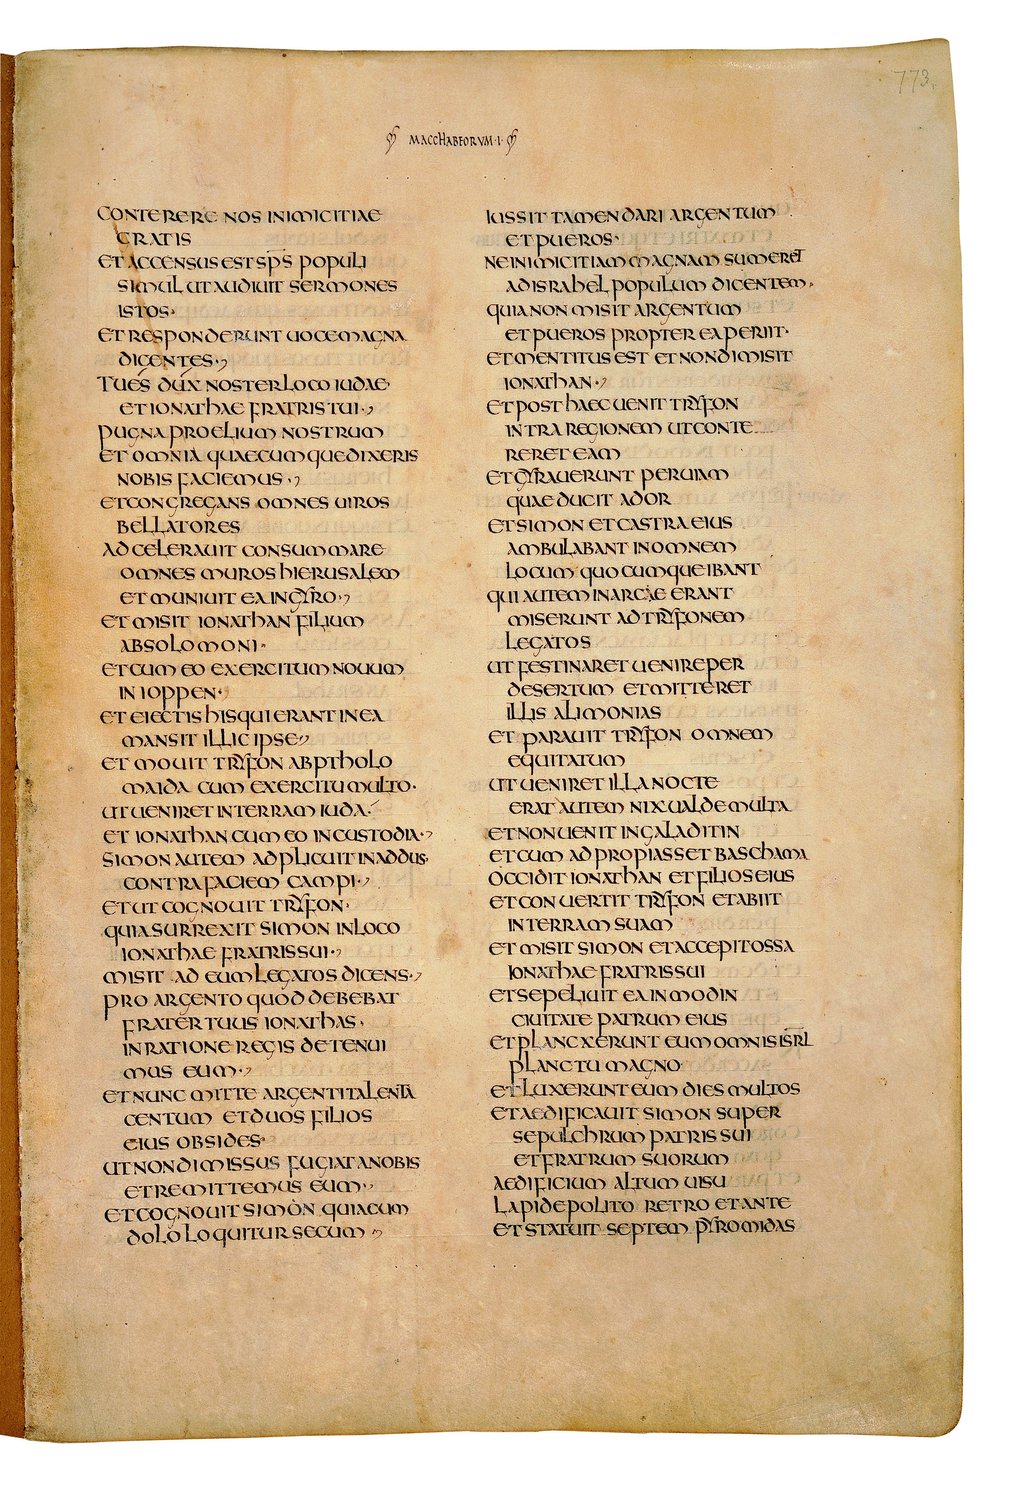 773
MACCHABEORVM · I ·
CONTERERE NOS INIMICITIAE
GRATIS
ET ACCENSUS EST SPS POPULI
SIMUL UT AUDIUIT SERMONES
ISTOS·
ET RESPONDERUNT UOCE MAGNA
DICENTES·
TU ES DUX NOSTER LOCO IUDAE
ET IONATHAE FRATRIS TUI·
PUGNA PROELIUM NOSTRUM
ET OMNIA QUAECUMQUE DIXERIS
NOBIS FACIEMUS·
ET CONGREGANS OMNES UIROS
BELLATORES
ADCELERAUIT CONSUMMARE
OMNES MUROS HIERUSALEM
ET MUNIUIT EA IN GYRO·
ET MISIT IONATHAN FILIUM
ABSOLOMONI·
ET CUM EO EXERCITUM NOUUM
IN IOPPEN·
ET EIECTIS HIS QUI ERANT IN EA
MANSIT ILLIC IPSE
ET MOUIT TRYFON AB PTHOLO
MAIDA CUM EXERCITU MULTO·
UT UENIRET IN TERRAM IUDA·
ET IONATHAN CUM EO IN CUSTODIA·
SIMON AUTEM ADPLICUIT IN ADDUS·
CONTRA FACIEM CAMPI·
ET UT COGNOUIT TRYFON·
QUIA SURREXIT SIMON IN LOCO
IONATHAE FRATRIS SUI·
MISIT AD EUM LEGATOS DICENS·
PRO ARGENTO QUOD DEBEBAT
FRATER TUUS IONATHAS·
IN RATIONE REGIS DETENUI
MUS EUM·
ET NUNC MITTE ARGENTI TALENTA
CENTUM ET DUOS FILIOS
EIUS OBSIDES·
UT NON DIMISSUS FUGIAT A NOBIS
ET REMITTEMUS EUM·
ET COGNOUIT SIMON QUIA CUM
DOLO LOQUITUR SECUM
IUSSIT TAMEN DARI ARGENTUM
ET PUEROS·
NE INIMICITIAM MAGNAM SUMERET
AD ISRAHEL POPULUM DICENTEM·
QUIA NON MISIT ARGENTUM
ET PUEROS PROPTEREA PERIIT·
ET MENTITUS EST ET NON DIMISIT
IONATHAN·
ET POST HAEC UENIT TRYFON
INTRA REGIONEM UT CONTE
RERET EAM
ET GYRAUERUNT PER UIAM
QUAE DUCIT ADOR
ET SIMON ET CASTRA EIUS
AMBULABANT IN OMNEM
LOCUM QUOCUMQUE IBANT
QUI AUTEM IN ARCAE ERANT
MISERUNT AD TRYFONEM
LEGATOS
UT FESTINARET UENIRE PER
DESERTUM ET MITTERET
ILLIS ALIMONIAS
ET PARAUIT TRYFON OMNEM
EQUITATUM
UT UENIRET ILLA NOCTE
ERAT AUTEM NIX UALDE MULTA
ET NON UENIT IN GALADITIN
ET CUM ADPROPIASSET BASCHAMA
OCCIDIT IONATHAN ET FILIOS EIUS
ET CONUERTIT TRYFON ET ABIIT
IN TERRAM SUAM
ET MISIT SIMON ET ACCEPIT OSSA
IONATHAE FRATRIS SUI
ET SEPELIUIT EA IN MODIN
CIUITATE PATRUM EIUS
ET PLANCXERUNT EUM OMNIS ISRL
PLANCTU MAGNO
ET LUXERUNT EUM DIES MULTOS
ET AEDIFICAUIT SIMON SUPER
SEPULCHRUM PATRIS SUI
ET FRATRUM SUORUM
AEDIFICIUM ALTUM UISU
LAPIDE POLITO RETRO ET ANTE
ET STATUIT SEPTEM PYROMIDAS